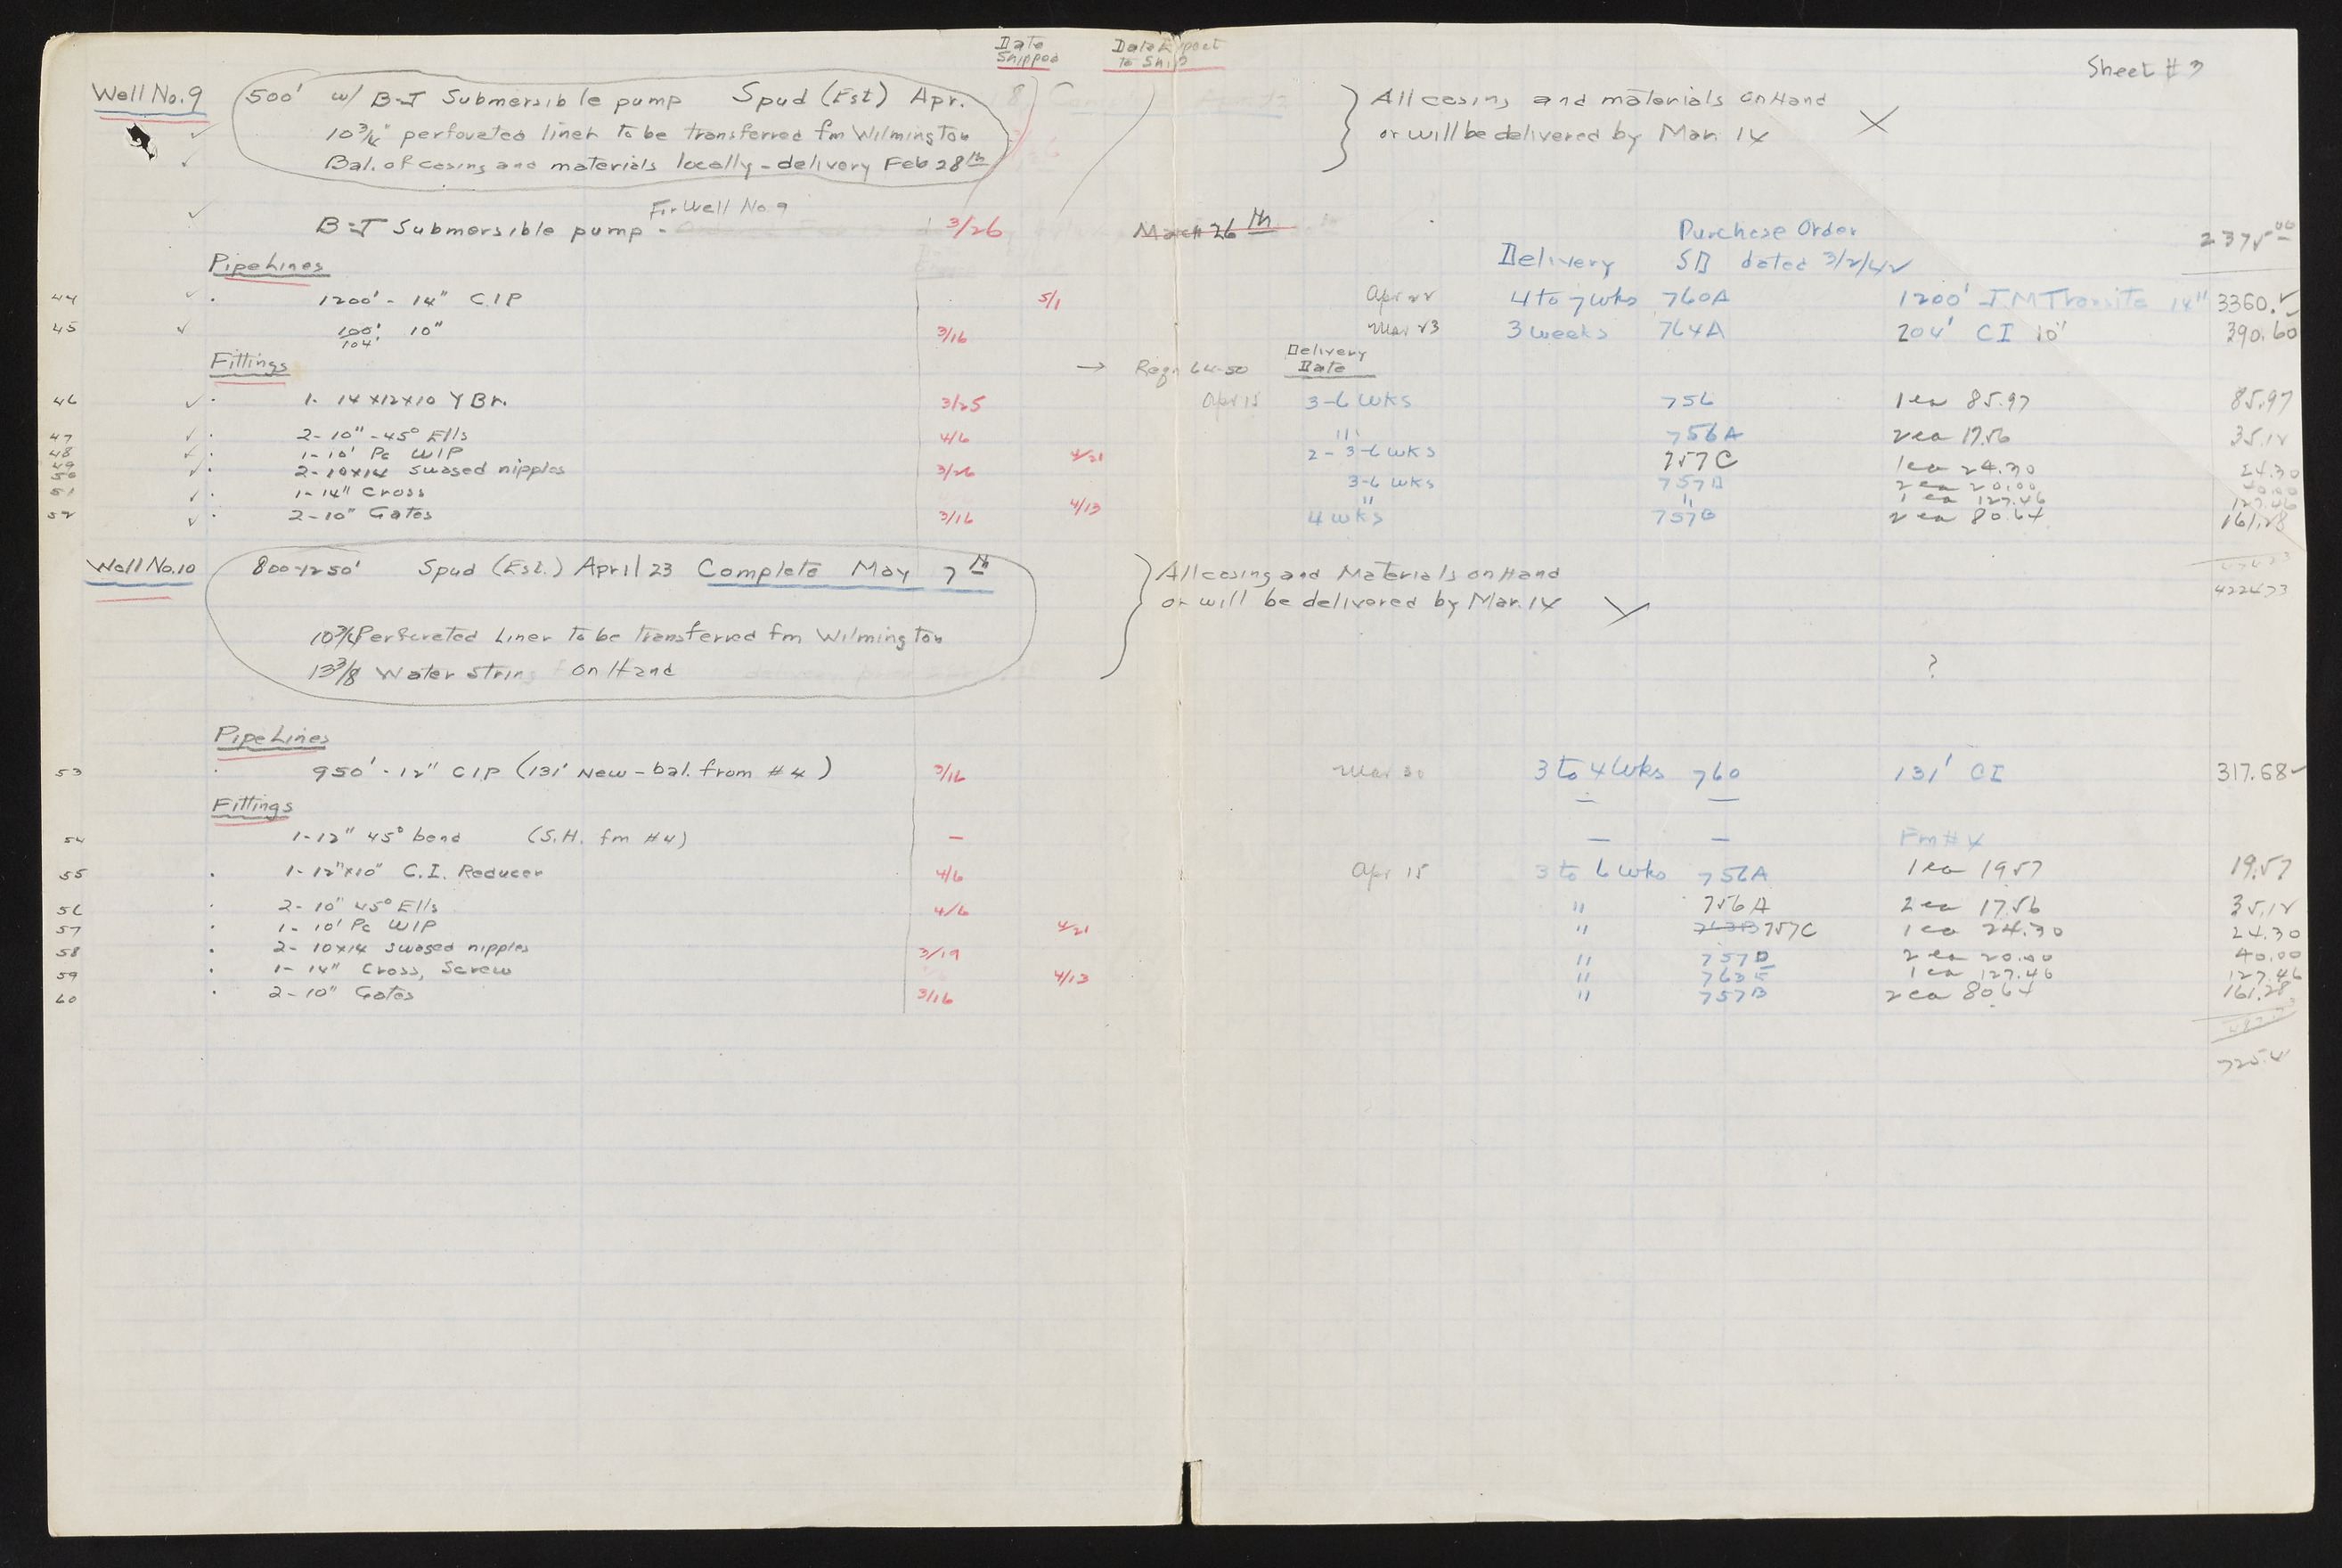 Date Shipped Date Expect To Ship
Sheet # 3
Well No. 9 500' w/ B-J Submersible pump Spud (Est) Apr. All casing and materials on Hand
10 3/4" perforated liner to be transferred fm Wilmington or will be delivered by Mar. 14 X
Bal. of casing and materials locally - delivery Feb 28th
For Well No. 9
B-J Submersible pump - 3/26 March 26th 2375.00
Purchase Order
Delivery SD dated 3/2/42
PipeLines
44 1200' - 14" C.I.P 5/1 Apr 22 4 to 7 wks 760A 1200' J.M Transite 14" 3360.
45 100' 10" 3/16 Mar 23 3 weeks 764A 204' CI 10" 390.60
104'
Fittings → Reqn 64-50 Delivery Date
46 1- 14x12x10 Y Br. 3/25 Apr 15 3-6 wks 756 1 ea 85.97 85.97
47 2-10"-45° Ells 4/6 " 756A 2 ea 17.56 35.12
48 1-10' Pc WIP 4/21 2-3-6 wks 757C 1 ea 24.30 24.30
49
50 2-10x14 swaged nipples 3/26 3-6 wks 757D 2 ea 20.00 40.00
51 1-14" Cross 4/13 " " 1 ea 127.46 127.46
52 2-10" Gates 3/16 4 wks 757B 2 ea 80.64 161.28
4224.73
Well No. 10 800-1250' Spud (Est.) April 23 Complete May 7th All casing and Materials on Hand
or will be delivered by Mar. 14
10 3/4 Perforated Liner to be transferred fm Wilmington
13 3/8 Water String on Hand ?
PipeLines
53 950' - 12" CIP (131' New - bal. from #4) 3/16 Mar 30 3 to 4 Wks 760 131' CI 317.68
Fittings
54 1-12" 45° bend (S.H. fm #4) — — — Fm #4
55 1-12"x10" C.I. Reducer 4/6 Apr 15 3 to 6 wks 756A 1 ea 19.57 19.57
56 2- 10" 45° Ells 4/6 " 756A 2 ea 17.56 35.12
57 1- 10' Pc WIP 4/21 " 757C 1 ea 24.30 24.30
58 2- 10x14 swaged nipples 3/19 " 757D 2 ea 20.00 40.00
59 1- 14" Cross, Screw 4/13 " 763E 1 ea 127.46 127.46
60 2-10" Gates 3/16 " 757B 2 ea 80.64 161.28
725.41